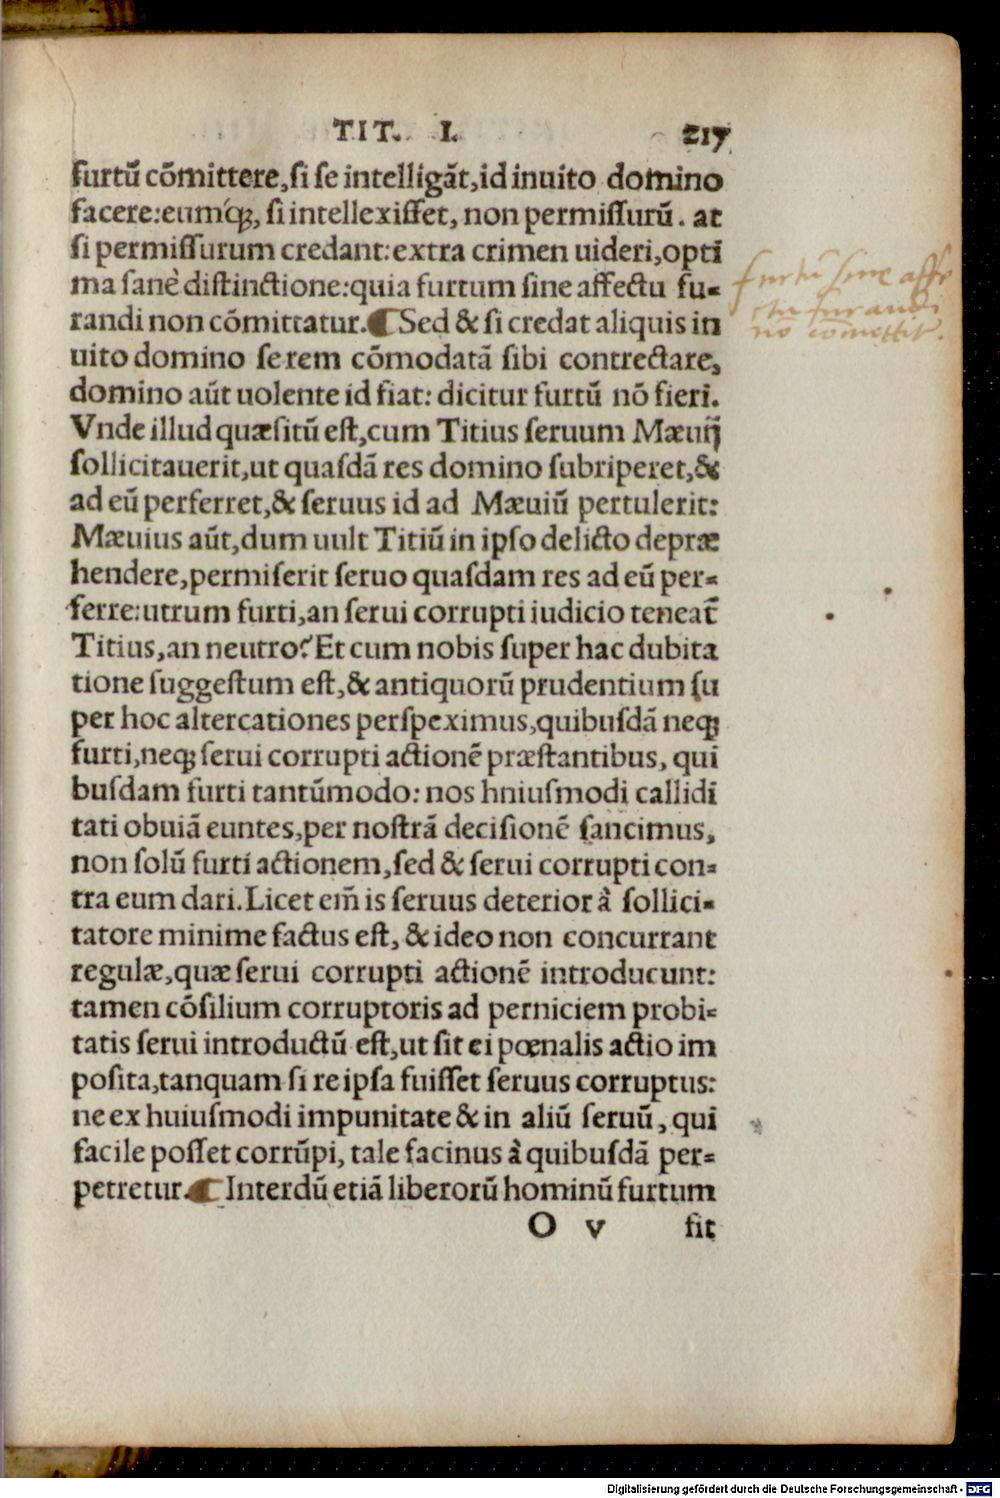 TIT. I. 217
furtū cōmittere, si se intelligāt, id inuito domino
facere: eumq́ꝫ, si intellexisset, non permissurū. at
si permissurum credant: extra crimen uideri, opti
ma sanè distinctione: quia furtum sine affectu fu-
randi non cōmittatur. ¶ Sed & si credat aliquis in
uito domino se rem cōmodatā sibi contrectare,
domino aūt uolente id fiat: dicitur furtū nō fieri.
Vnde illud quæsitū est, cum Titius seruum Mæuij
sollicitauerit, ut quasdā res domino subriperet, &
ad eū perferret, & seruus id ad Mæuiū pertulerit:
Mæuius aūt, dum uult Titiū in ipso delicto depræ
hendere, permiserit seruo quasdam res ad eū per-
ferre: utrum furti, an serui corrupti iudicio teneat̄
Titius, an neutro? Et cum nobis super hac dubita
tione suggestum est, & antiquorū prudentium su
per hoc altercationes perspeximus, quibusdā neqꝫ
furti, neqꝫ serui corrupti actionē præstantibus, qui
busdam furti tantūmodo: nos hniusmodi callidi
tati obuiā euntes, per nostrā decisionē sancimus,
non solū furti actionem, sed & serui corrupti con-
tra eum dari. Licet em̄ is seruus deterior à sollici-
tatore minime factus est, & ideo non concurrant
regulæ, quæ serui corrupti actionē introducunt:
tamen cōsilium corruptoris ad perniciem probi-
tatis serui introductū est, ut sit ei pœnalis actio im
posita, tanquam si re ipsa fuisset seruus corruptus:
ne ex huiusmodi impunitate & in aliū seruū, qui
facile posset corrūpi, tale facinus à quibusdā per-
petretur. ¶ Interdū etiā liberorū hominū furtum
O v sit
furtū sine affe
ctu furandi
nō cōmittit̄.
Digitalisierung gefördert durch die Deutsche Forschungsgemeinschaft - DFG